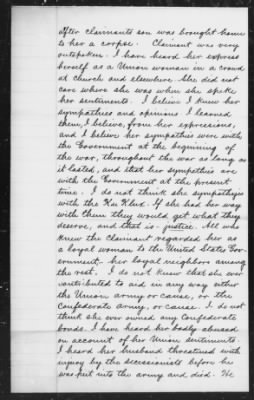 after claimants son was brought home
to her a corpse. Claimant was very
outspoken. I have heard her express
herself as a Union woman in a crowd
at church and elsewhere. She did not
care where she was when she spoke
her sentiments. I believe I knew her
sympathies and opinions I learned
them, I believe, from her expressions,
and I believe her sympathies were with
the Government at the beginning of
the war, throughout the war as long as
it lasted, and that her sympathies are
with the Government at the present
time. I do not think she sympathizes
with the Ku Klux. If she had her way
with them they would get what they
deserve, and that is justice. All who
knew the Claimant regarded her as
a loyal woman to the United States Gov-
ernment. her loyal neighbors among
the rest. I do not know that she ever
contributed to aid in any way either
the Union army or cause, or the
Confederate army, or cause. I do not
think she ever owned any Confederate
bonds. I have heard her badly abused
on account of her Union sentiments.
I heard her husband threatened with
injury by the secessionists before he
was put into the army and died. He